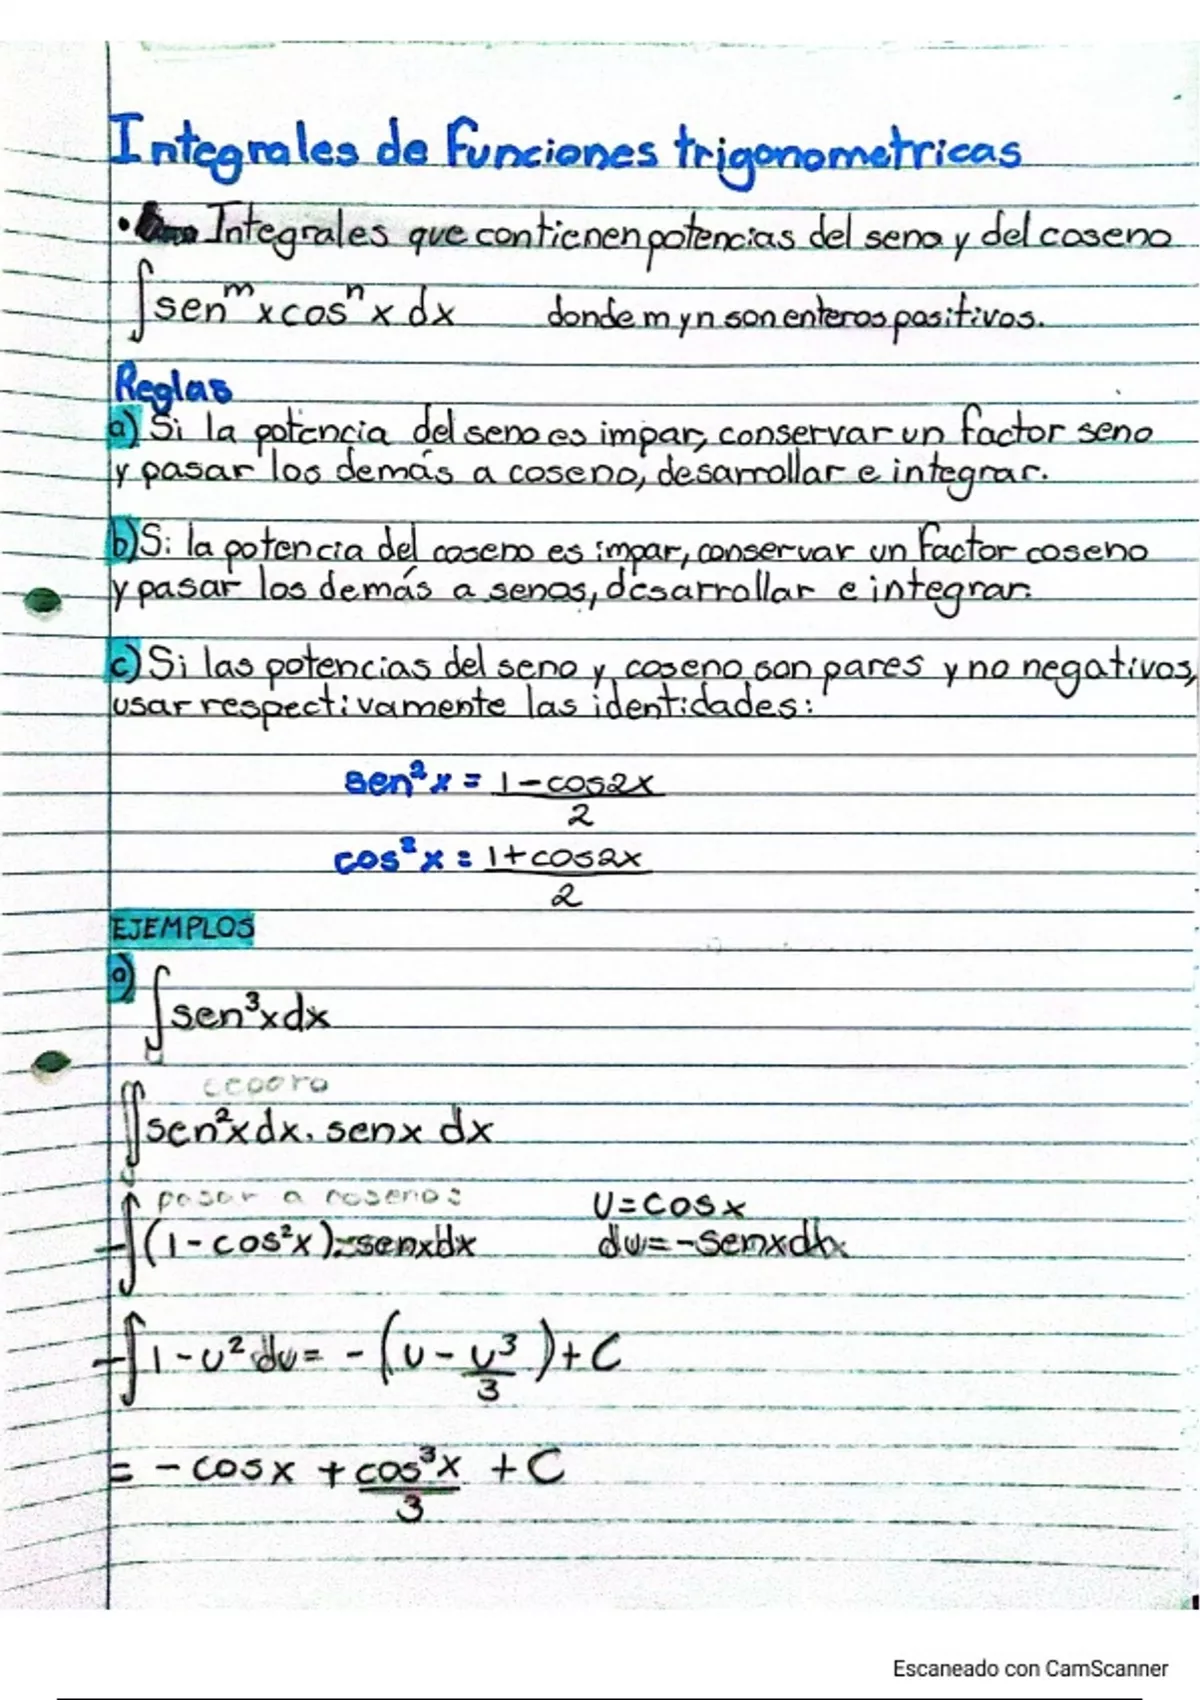 Integrales de funciones trigonometricas
• Integrales que contienen potencias del seno y del coseno
∫senᵐxcosⁿx dx donde m y n son enteros positivos.
Reglas
a) Si la potencia del seno es impar, conservar un factor seno
y pasar los demás a coseno, desarrollar e integrar.
b) Si la potencia del coseno es impar, conservar un factor coseno
y pasar los demás a senos, desarrollar e integrar.
c) Si las potencias del seno y coseno son pares y no negativos,
usar respectivamente las identidades:
sen²x = 1-cos2x
2
cos²x = 1+cos2x
2
EJEMPLOS
a)
∫sen³xdx
separo
∫∫sen²xdx. senx dx
pasar a cosenos:
-∫(1-cos²x)-senxdx U=cosx
du=-senxdx
-∫1-u²du= -(u-u³)+C
3
= -cosx +cos³x +C
3
Escaneado con CamScanner